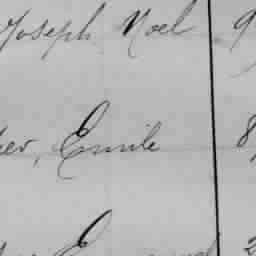 Joseph Noel 9
er, Emile 8,
2